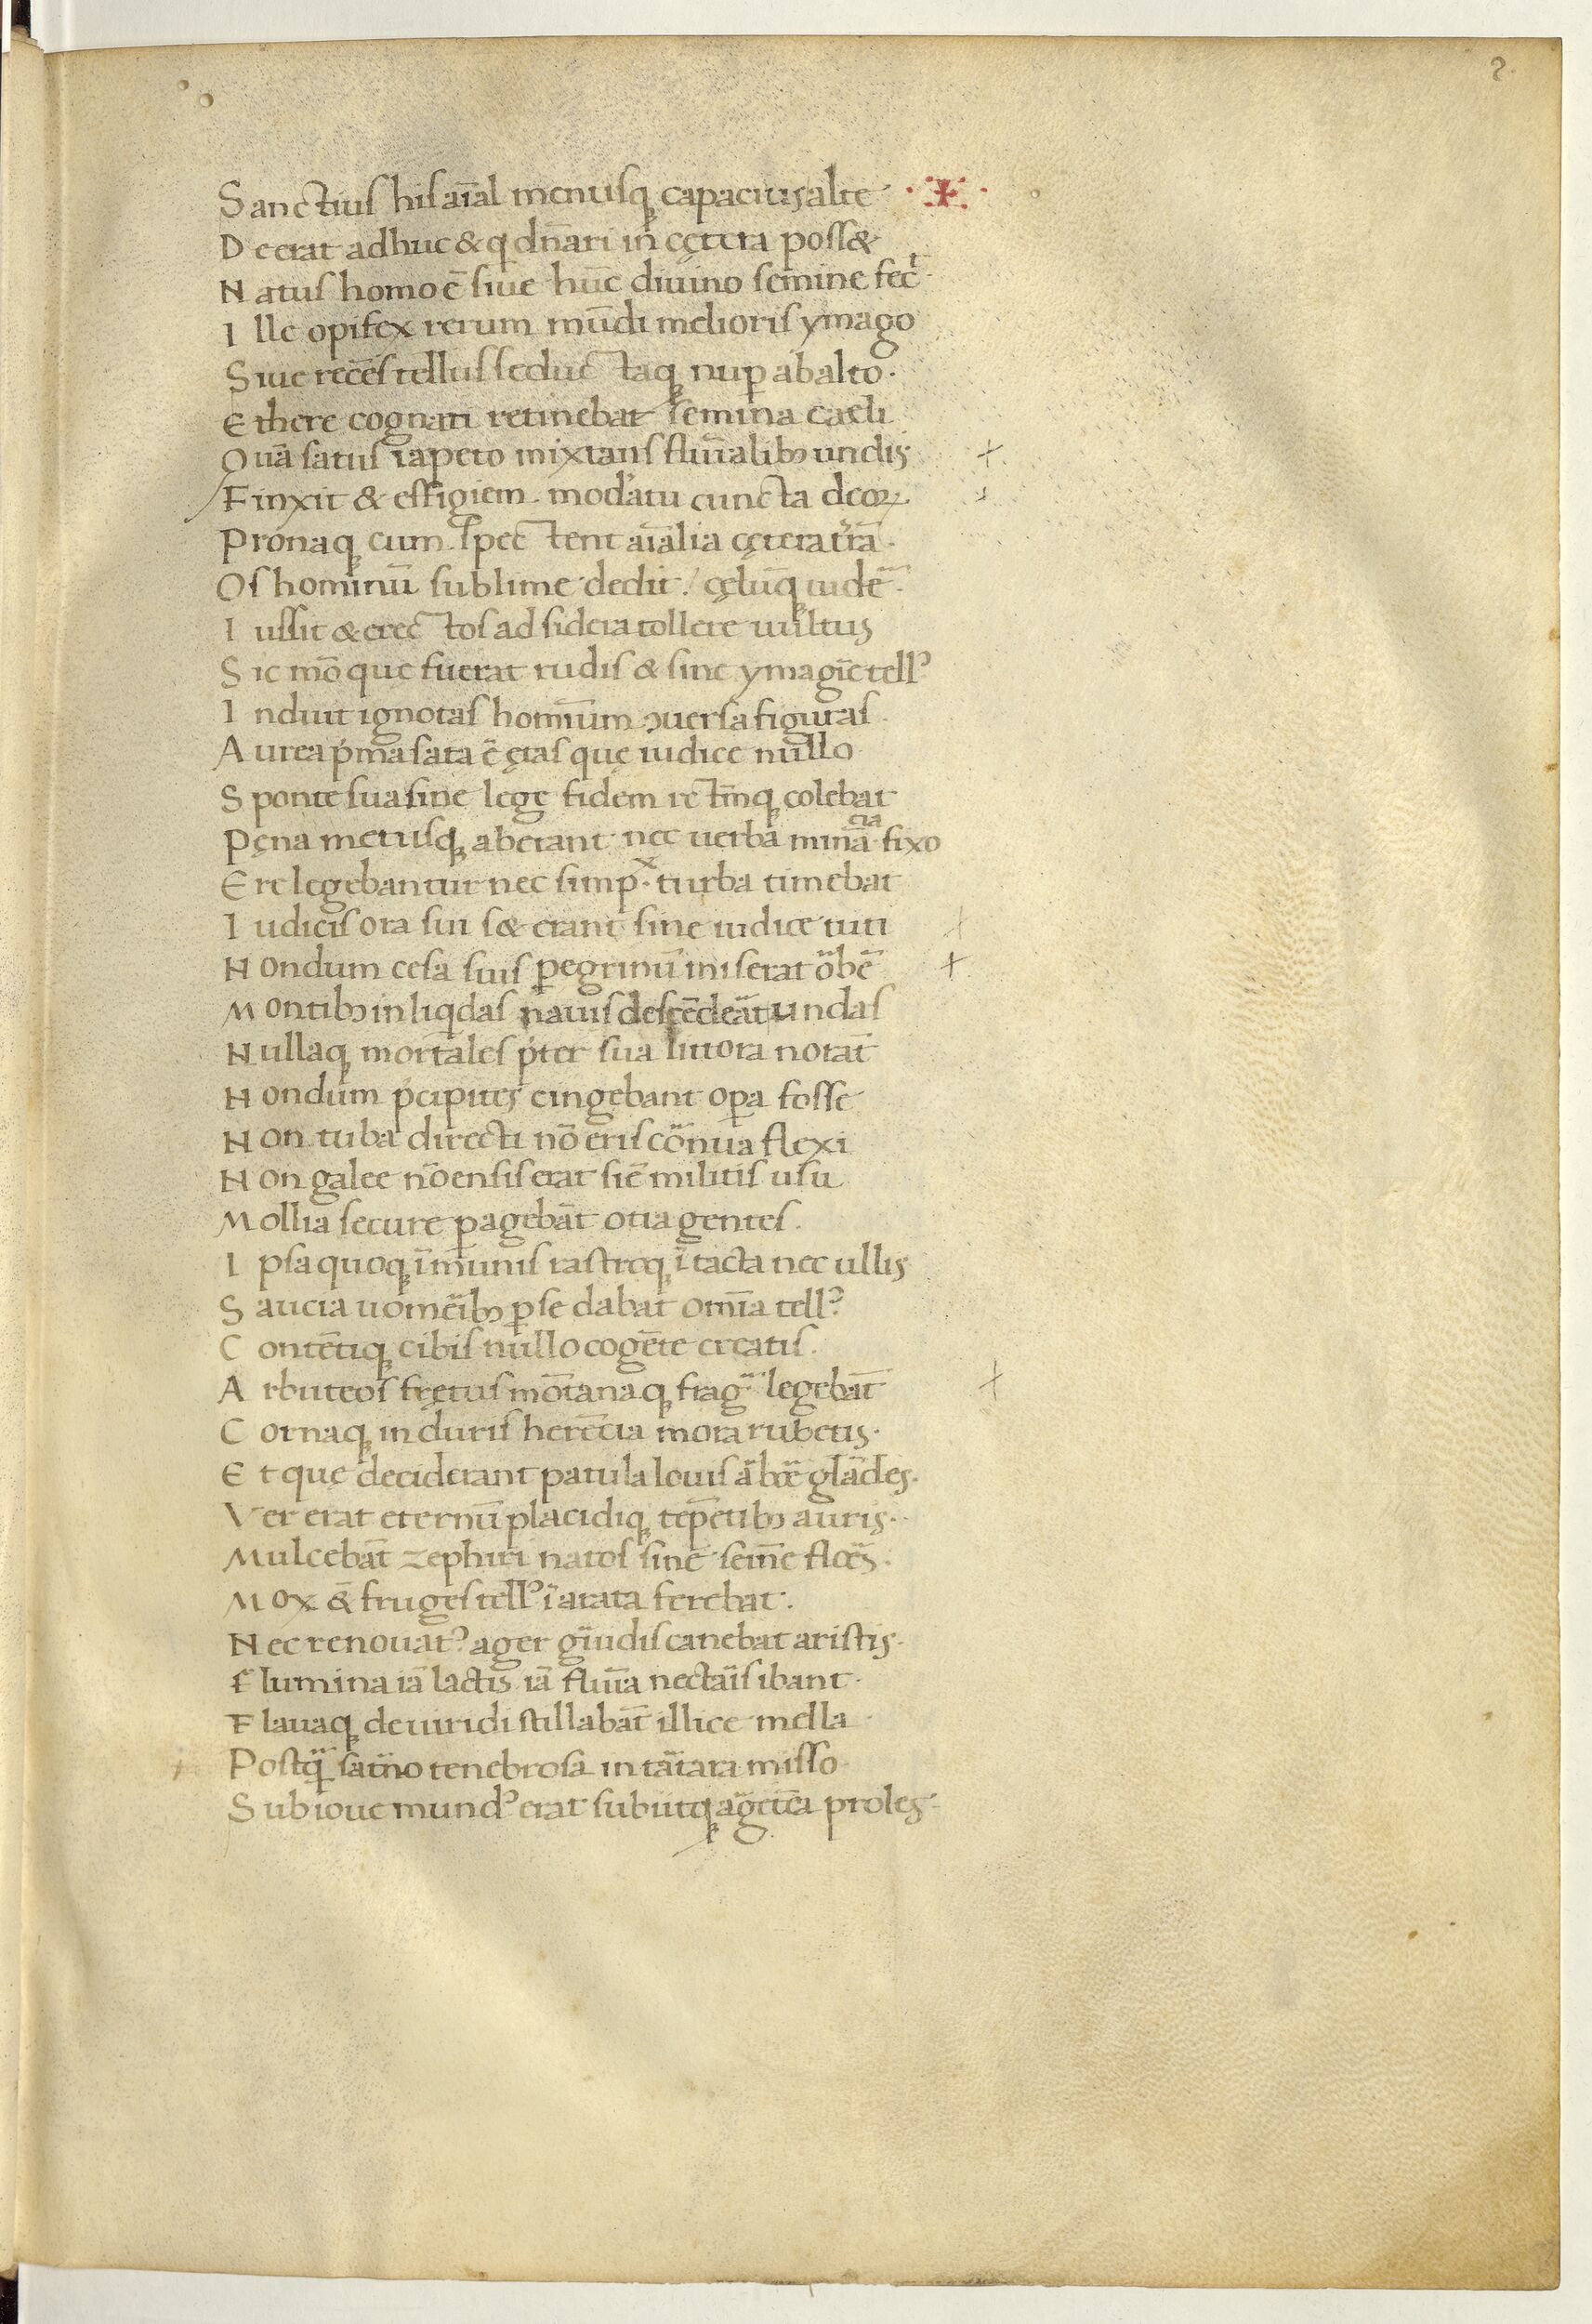 2.
Sanctius his aīal mentisq; capacius alte
Deerat adhuc & qͥ dn̄ari in cętera poss&
Natus homo ē siue hūc diuino semine fecͭ
Ille opifex rerum mūdi melioris ymago
Siue recēs tellus seductaq; nuꝑ ab alto.
Ethere cognati retinebat semina caeli
Quā satus iapeto mixtam fluuialib; undis
Finxit & effigiem mod'atū cuncta deoꝝ
Pronaq; cum spectent aīalia cętera t'rā.
Os hominū sublime dedit. cęlūq; uidē
Iussit & erectos ad sidera tollere uultus
Sic mō que fuerat rudis & sine ymagīe tellꝰ
Induit ignotas hominum ꝯuersa figuras.
Aurea pͥma sata ē ętas quę iudice nullo
Sponte sua sine lege fidem rectūq; colebat
Pęna metusq; aberant nec uerba minātia fixo
Ere legebantur nec simpˣ. turba timebat
Iudicis ora sui s& erant sine iudice tuti
Nondum cesa suis ꝑegrinū ut uiserat orbē
Montib; in liqͥdas nauis descēdeat undas
Nullaq; mortales p̄ter sua littora norāt
Nondum p̄cipites cingebant opꝑa fosse
Non tuba directi nō eris cornua flexi
Non galee nō ensis erat siē militis usu
Mollia secure ꝑagebāt otia gentes.
Ipsa quoq; īmunis rastroq; ītacta nec ullis
Saucia uomerib; ꝑ se dabat omīa tellꝰ
Contētiq; cibis nullo cogēte creatis.
Arbuteos fretus mōtanaq; fraga legebāt
Cornaq; in duris herētia mora rubetis.
Et que deciderant patula Iouis arbore glādes.
Ver erat eternū placidiq; tepētib; auris.
Mulcebāt zephiri natos sine semīe flores.
Mox &̄ fruges tellꝰ īarata ferebat.
Nec renouatꝰ ager grauidis canebat aristis.
Flumina iā lactis iā fluuīa nectaris ibant.
Flauaq; de uiridi stillabāt illice mella
Postqͣ saturno tenebrosa in tartara misso
Sub ioue mundꝰ erat subiitq; argētea proles